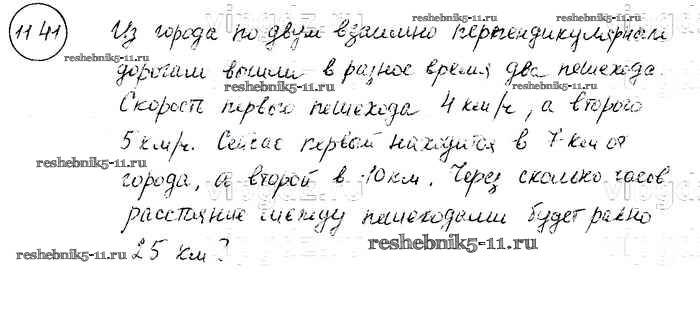 1141
Из города по двум взаимно перпендикулярным
reshebnik5-11.ru
reshebnik5-11.ru
дорогам вышли в разное время два пешехода.
reshebnik5-11.ru
Скорость первого пешехода 4 км/ч, а второго
5 км/ч. Сейчас первый находится в 7 км от
reshebnik5-11.ru
reshebnik5-11.ru
города, а второй в 10 км. Через сколько часов
расстояние между пешеходами будет равно
25 км?
reshebnik5-11.ru
reshebnik5-11.ru